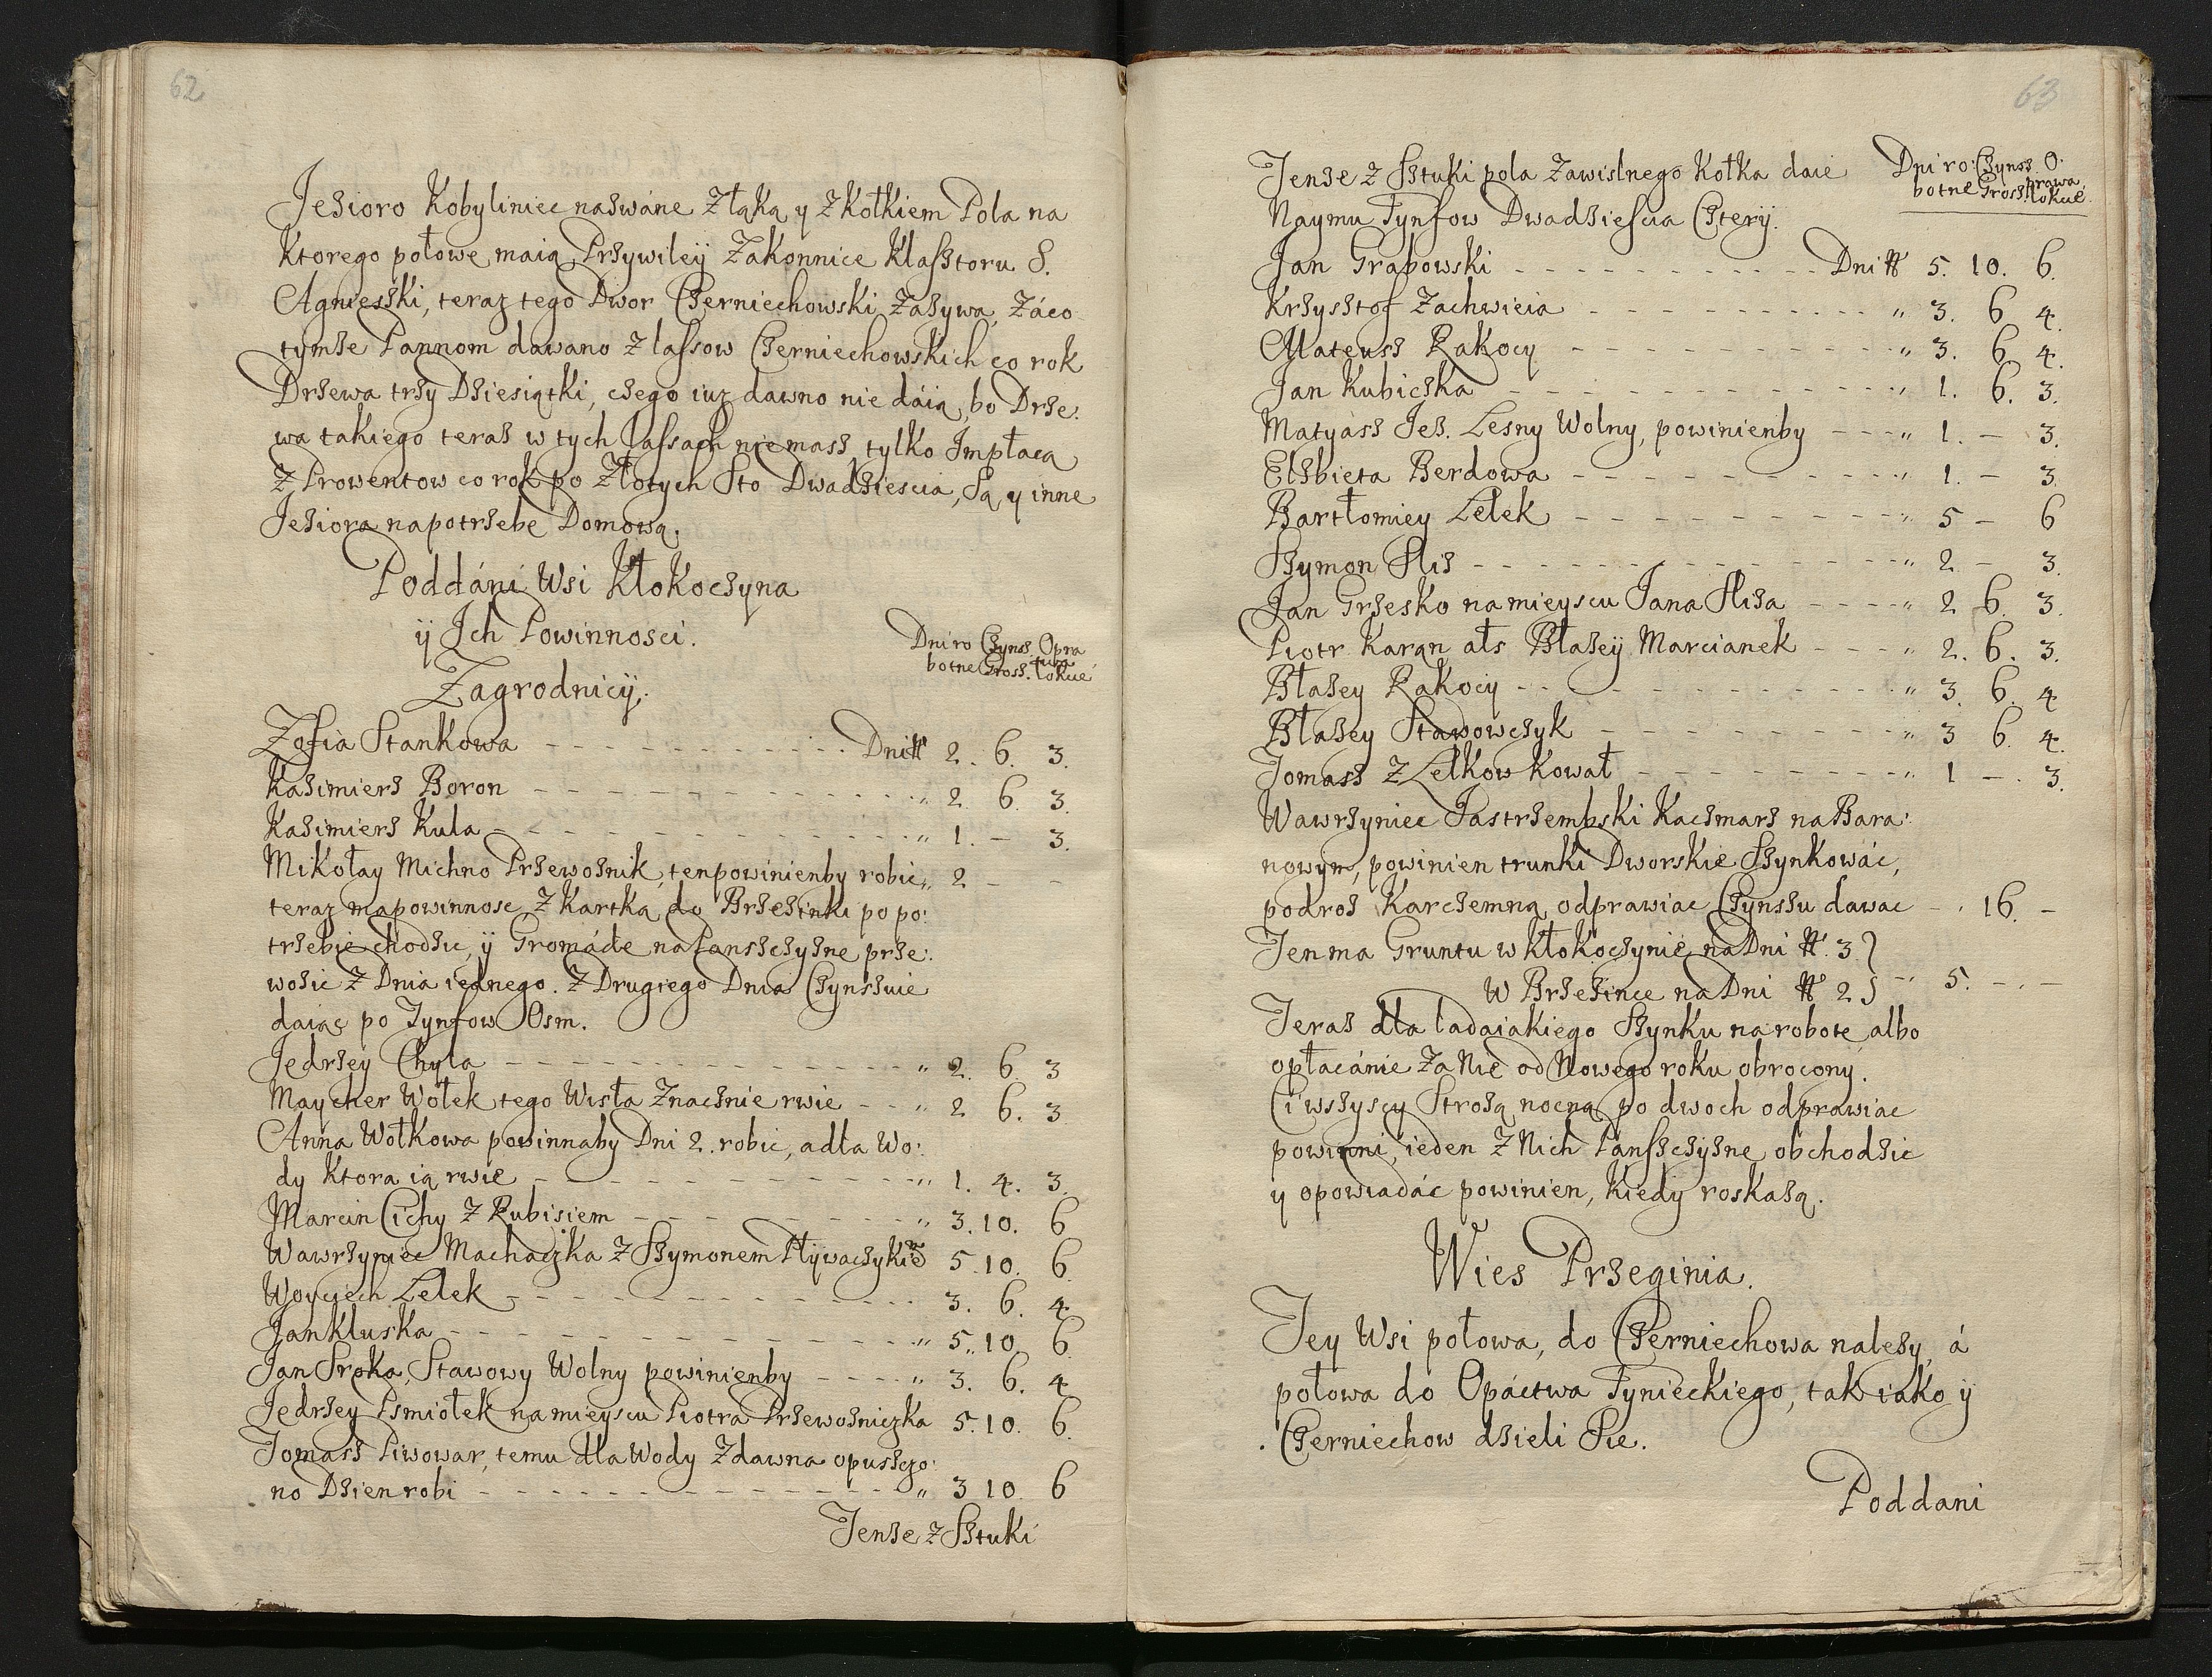 62
Jeźioro Kobyliniec naźwáne Z łąką y z kołkiem Pola na
Ktorego połowe maią Przywiley Zakonnice Klasztoru S.
Agnieszki, teraz tego Dwor Czerniechowski Zaźywa, Záco
tymźe Pannom dawano z lassow Czerniechowskich co rok
Drzewa trzy Dźiesiątki, czego iuz dawno nie dáią, bo Drze:
wa takiego teraz w tych Lassach niemasz, tylko Impłacą
z Prowentow co rok po Złotych Sto Dwadźiescia, Są y inne
Jeźiora na potrzebe Domową.
Poddáni Wsi Kłokoczyna
ÿ Jch Powinnosci.
Zagrodnicÿ.
Dni ro Czynsz Opra
botne Grosz. wa łokcie
Zofia Stankowa - - - Dni # 2. 6. 3.
Kaźimierz Boron - - - „ 2. 6. 3.
Kaźimierz Kula - - - „ 1. - 3.
Mikołay Michno Przewoźnik, ten powinienby robic „ 2 - -
teraz ma powinnosc Z Kartką do Brzeźinki po po:
trzebie chodźic, ÿ Gromáde na Panszczyźne prze:
woźic Z Dnia iednego. Z Drugiego Dnia Czynszuie
daiąc po Tynfow Osm.
Jedrzey Chyla - - - „ 2. 6. 3
Maycher Wołek tego Wisła Znacznie rwie - - „ 2 6. 3
Anna Wołkowa powinnaby Dni 2. robic, a dla Wo:
dy Ktora ią rwie - - - „ 1. 4. 3.
Marcin Cichy Z Kubisiem - - - „ 3. 10. 6
Wawrzyniec Machaczka Z Szymonem Pływaczykiem 5. 10. 6.
Woyciech Lelek - - - 3. 6. 4
Jan Kluska - - - „ 5. 10. 6
Jan Sroka, Stawowy Wolny powinienby - - - „ 3. 6. 4
Jedrzey Psmiołek na mieyscu Piotra Przewoźniczka 5. 10. 6.
Tomasz Piwowar, temu dla Wody Zdawna opuszczo:
no Dźien robi - - - „ 3 10. 6
Tenze z Sztuki
63
Tenze z Sztuki pola Zawislnego Kołka daie
Naymu Tynfow Dwadźiescia Czterÿ.
Dni ro: Czynsz. O:
botne Grosz. prawa łokcie.
Jan Grabowski - - - Dni # 5. 10. 6.
Krzysztof Zachwieia - - - „ 3. 6 4.
Mateusz Rakocy - - - „ 3. 6 4.
Jan Kubiczka - - - „ 1. 6. 3.
Matyasz Jez. Lesny Wolny, powinienby - - - „ 1. - 3.
Elzbieta Berdowa - - - „ 1. - 3.
Bartłomiey Lelek - - - „ 5 - 6
Szymon Sliz - - - „ 2 - 3.
Jan Grzesko na mieyscu Jana Sliza - - - „ 2 6. 3.
Piotr Karąn als Błaźeÿ Marcianek - - - „ 2. 6. 3.
Błaźey Rakocy - - - „ 3. 6. 4
Błaźey Stawowczyk - - - „ 3 6. 4.
Tomasz Z Lelkow Kował - - - „ 1 - . 3.
Wawrzyniec Jastrzembski Kaczmarz na Bara:
nowym, powinien trunki Dworskie Szynkowác,
podroz Karczemną odprawiac Czynszu dawac - „ 16. -
Ten ma Gruntu w Kłokoczynie na Dni #. 3 }
W Brzeźince na Dni # 2 } - „ 5. - . -
Teraz dla ladaiakiego Szynku na robote albo
opłacánie Za Nie od Nowego roku obrocony.
Ci wszyscy Stroźą nocną po dwoch odprawiac
powinni, ieden Z Nich Panszczyzne obchodźic
y opowiadác powinien, Kiedy roskaźą.
Wies Przeginia.
Tey Wsi połowa, do Czerniechowa naleźy, á
połowa do Opáctwa Tynieckiego, tak iako ÿ
Czerniechow dźieli Sie.
Poddani